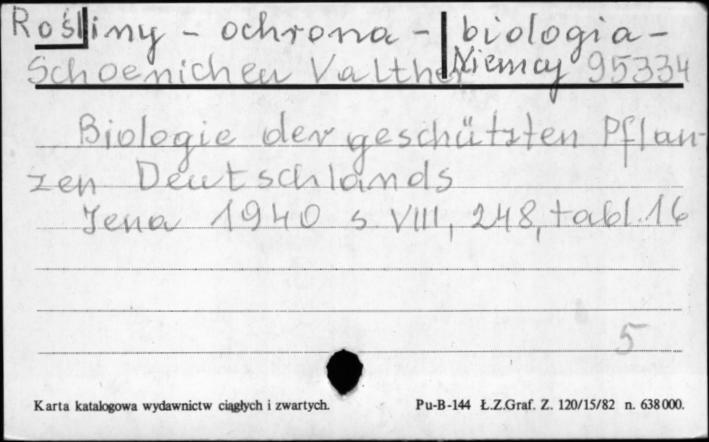 Rośliny - ochrona - biologia -
Schoenichen Valther Niemcy 95334
Biologie der geschützten Pflan-
zen Deutschlands
Jena 1940 s. VIII, 248, tabl. 16
5
Karta katalogowa wydawnictw ciągłych i zwartych. Pu-B-144 Ł.Z.Graf. Z. 120/15/82 n. 638000.